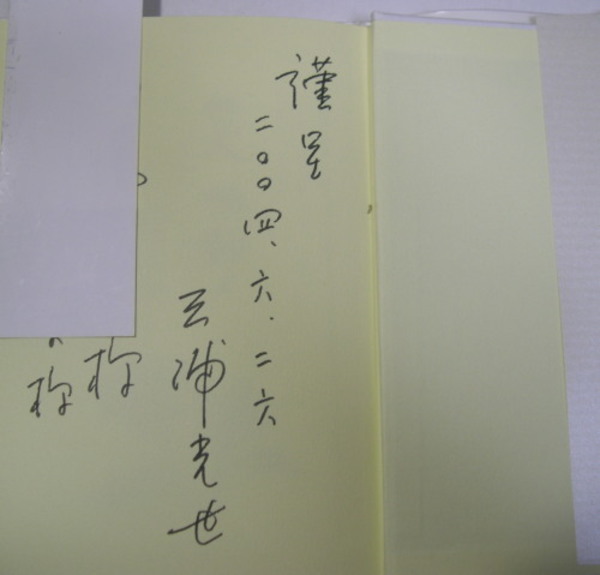 謹呈
二〇〇四、六、二六
三浦光世
様
様